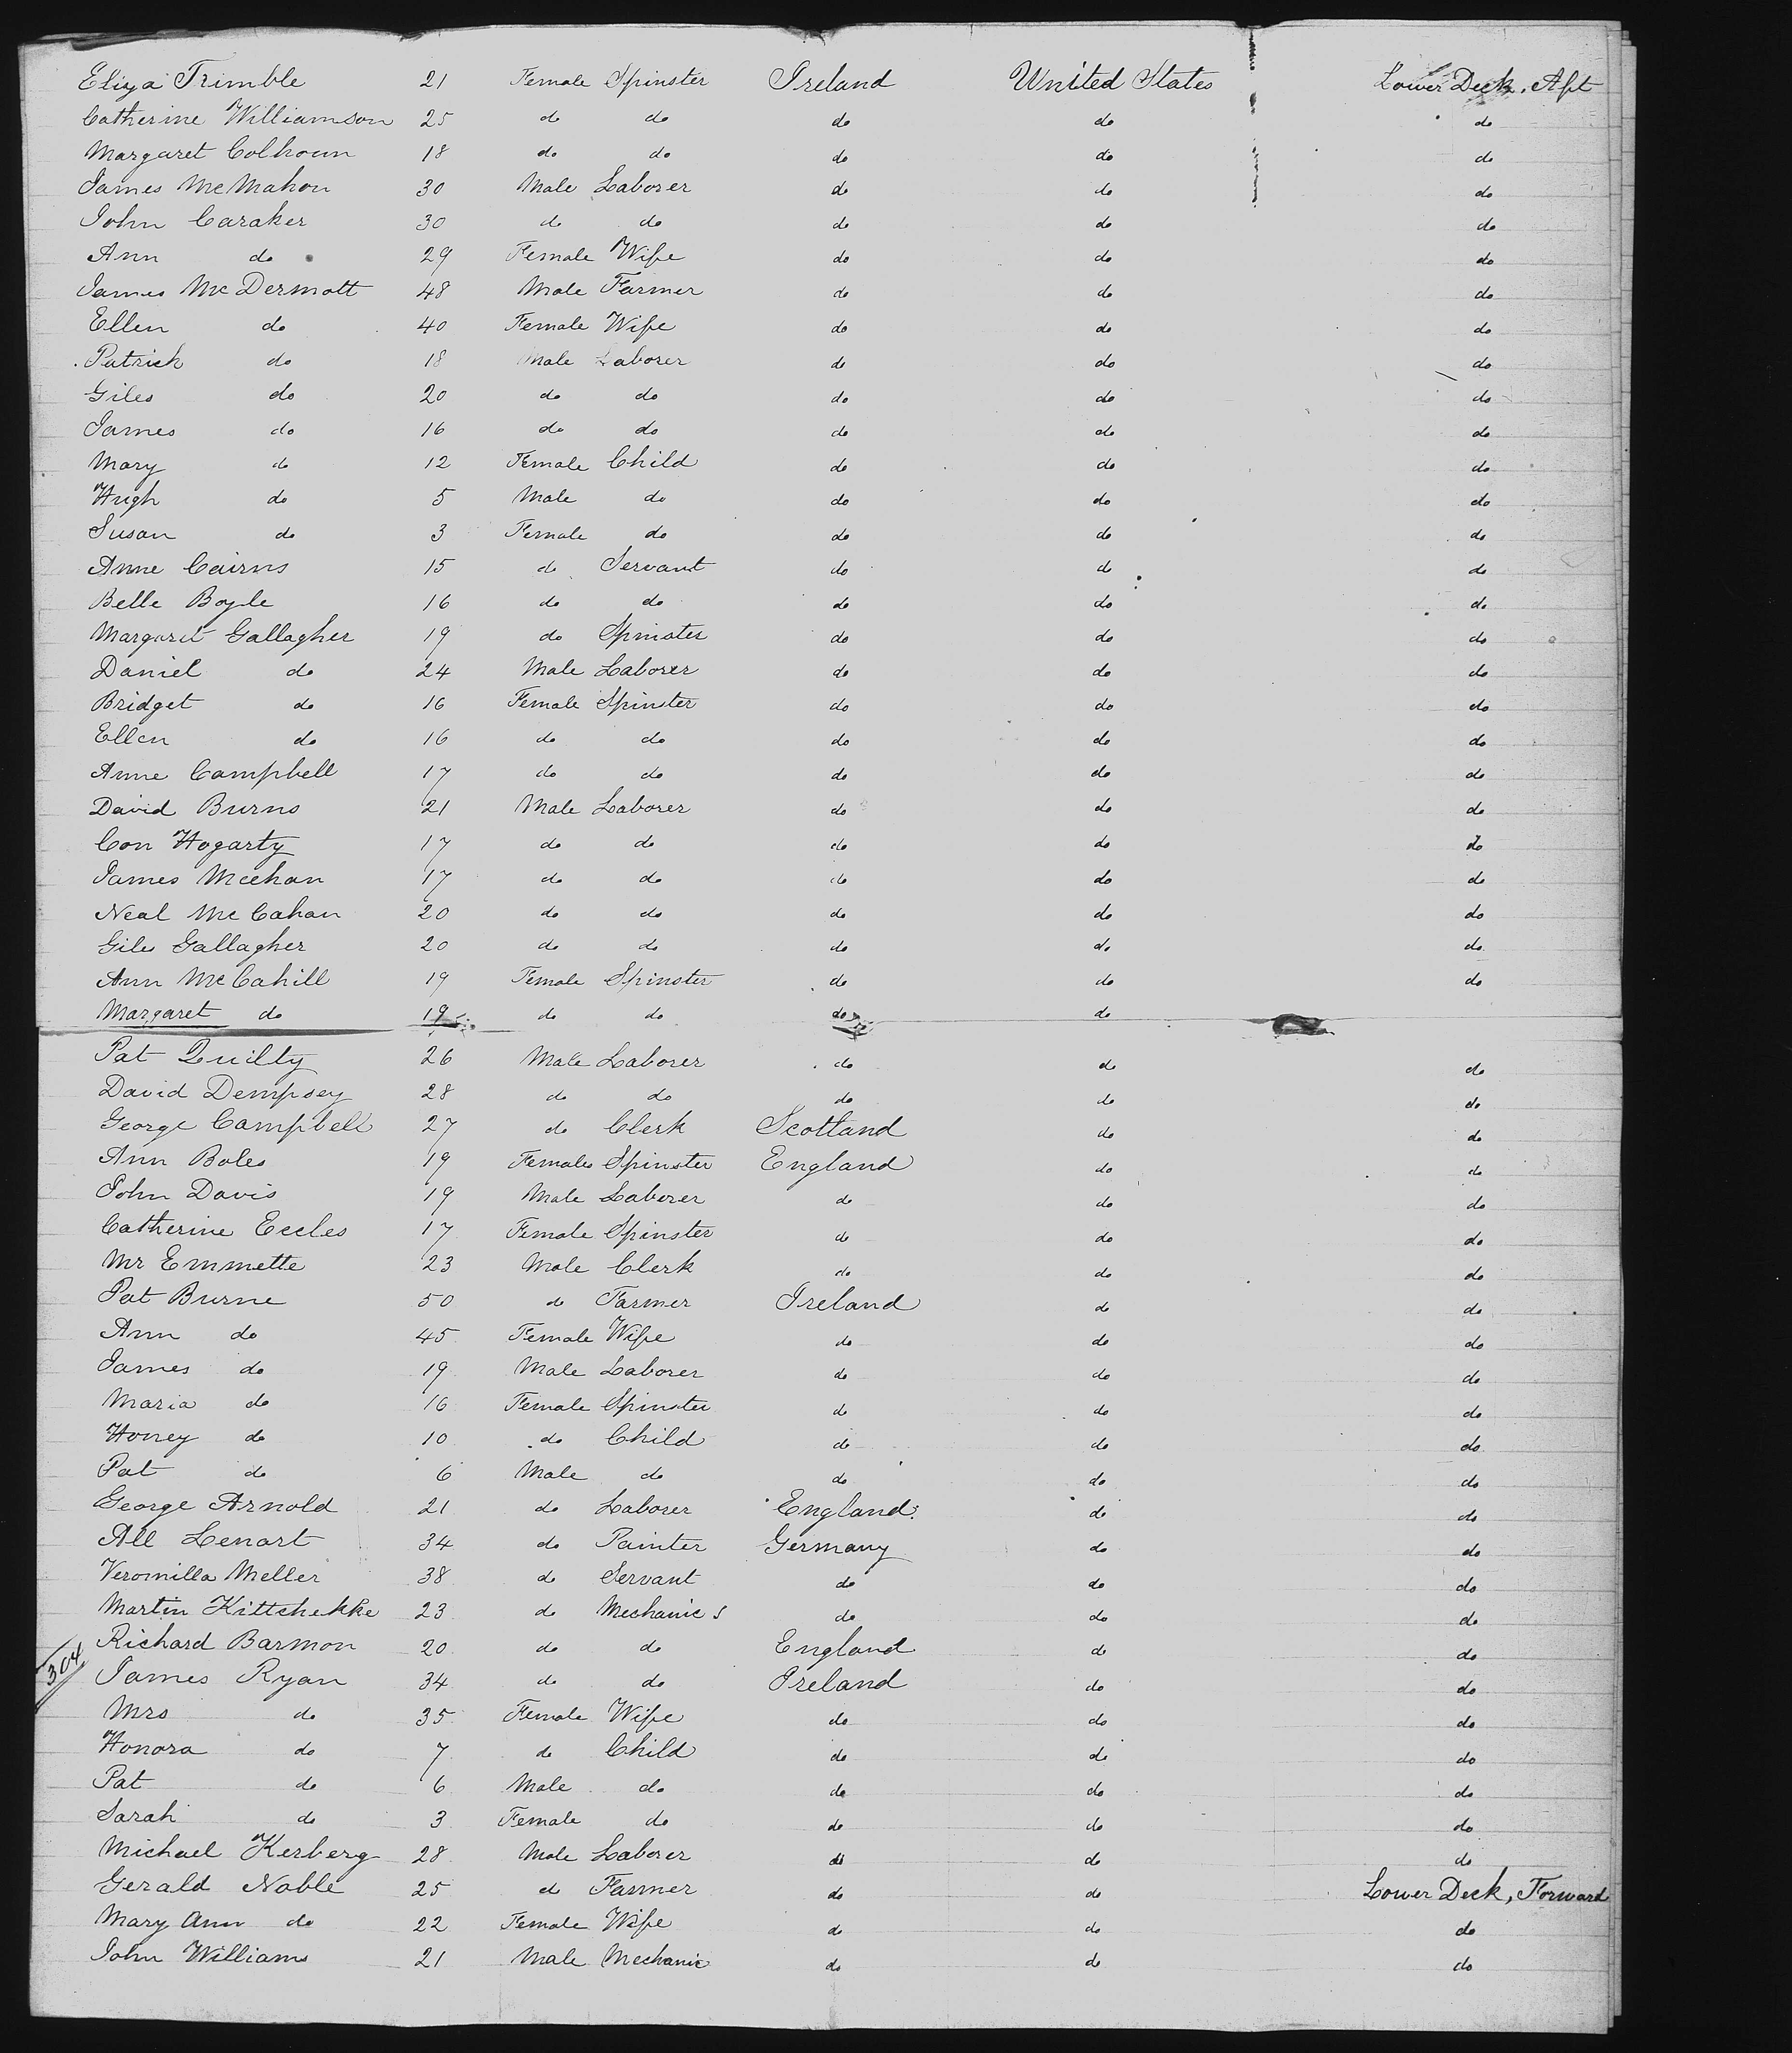 Eliza Trimble 21 Female Spinster Ireland United States Lower Deck, Aft
Catherine Williamson 25 do do do do do
Margaret Colhoun 18 do do do do do
James McMahon 30 Male Laborer do do do
John Caraker 30 do do do do do
Ann do 29 Female Wife do do do
James McDermott 48 Male Farmer do do do
Ellen do 40 Female Wife do do do
Patrick do 18 Male Laborer do do do
Giles do 20 do do do do do
James do 16 do do do do do
Mary do 12 Female Child do do do
Hugh do 5 Male do do do do
Susan do 3 Female do do do do
Anne Cairns 15 do Servant do do do
Belle Boyle 16 do do do do do
Margaret Gallagher 19 do Spinster do do do
Daniel do 24 Male Laborer do do do
Bridget do 16 Female Spinster do do do
Ellen do 16 do do do do do
Anne Campbell 17 do do do do do
David Burns 21 Male Laborer do do do
Con Hogarty 17 do do do do do
James Meehan 17 do do do do do
Neal McCahan 20 do do do do do
Giles Gallagher 20 do do do do do
Ann McCahill 19 Female Spinster do do do
Margaret do 19 do do do do
Pat Quilty 26 Male Laborer do do do
David Dempsey 28 do do do do do
George Campbell 27 do Clerk Scotland do do
Ann Boles 19 Females Spinster England do do
John Davis 19 Male Laborer do do do
Catherine Eccles 17 Female Spinster do do do
Mr Emmette 23 Male Clerk do do do
Pat Burne 50 do Farmer Ireland do do
Ann do 45 Female Wife do do do
James do 19 Male Laborer do do do
Maria do 16 Female Spinster do do do
Honey do 10 do Child do do do
Pat do 6 Male do do do do
George Arnold 21 do Laborer England do do
All Lenart 34 do Painter Germany do do
Veromilla Meller 38 do Servant do do do
Martin Kittshekke 23 do Mechanics do do do
Richard Barmon 20 do do England do do
304 James Ryan 34 do do Ireland do do
Mrs do 35 Female Wife do do do
Honora do 7 do Child do do do
Pat do 6 Male do do do do
Sarah do 3 Female do do do do
Michael Kerberg 28 Male Laborer do do do
Gerald Noble 25 do Farmer do do Lower Deck, Forward
Mary Ann do 22 Female Wife do do do
John Williams 21 Male Mechanic do do do